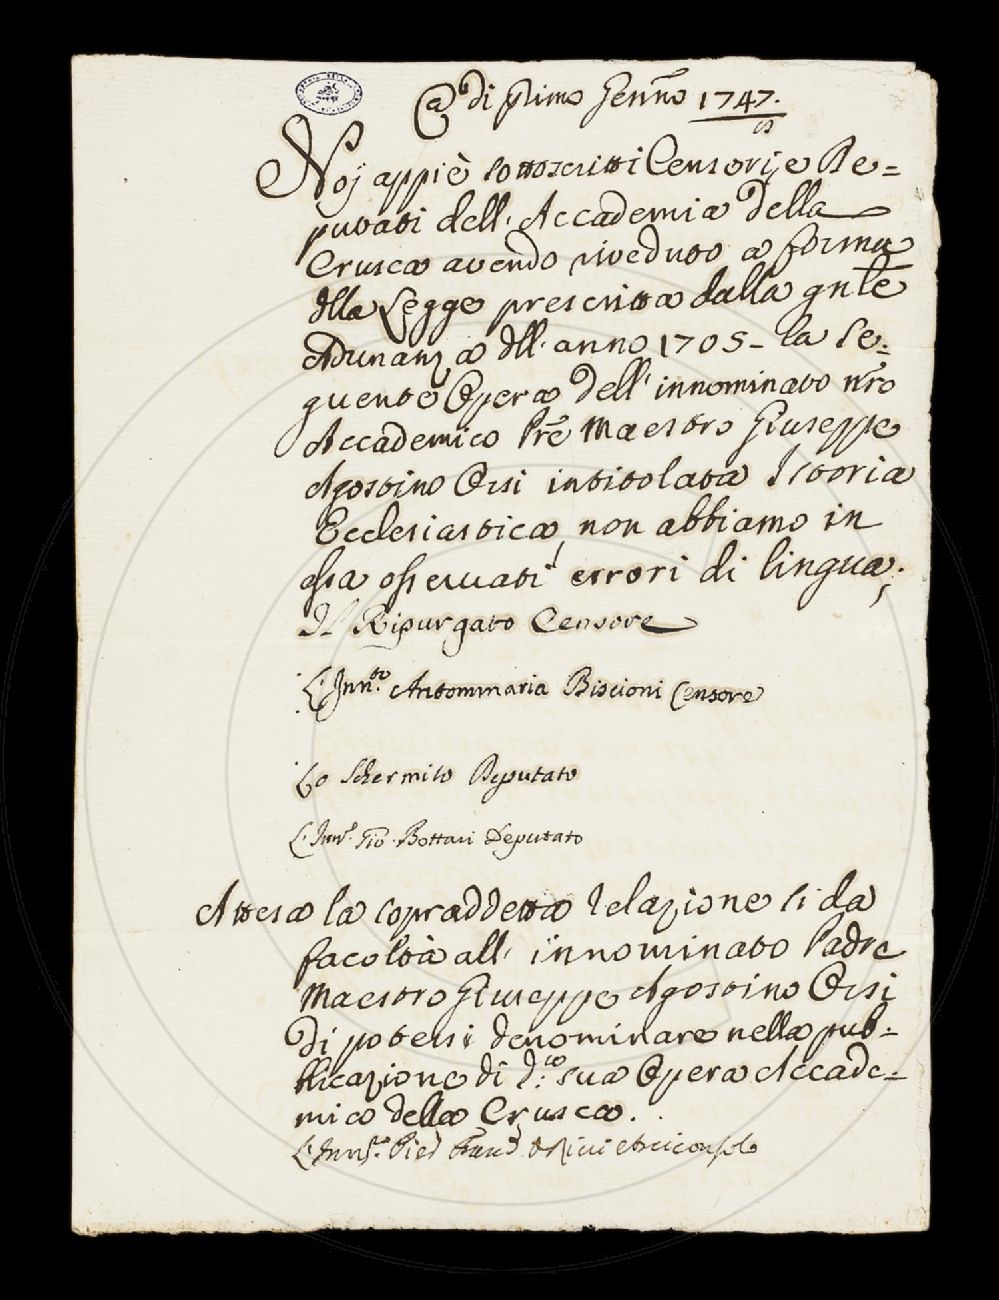 Adi primo Genn:o 1747.
Noi appiè sottoscritti Censori, e De=
putati dell'Accademia della
Crusca avendo riveduto a forma
dlla Legge prescritta dalla gnle
Adunanza dll'anno 1705 - la Se=
guente Opera dell'innominato nro
Accademico Pre Maestro Giuseppe
Agostino Orsi intitolata Istoria
Ecclesiastica, non abbiamo in
essa osservati errori di lingua.
Il Ripurgato Censore
L'Inn.to Antommaria Biscioni Censore
Lo Schermito Deputato
L'Inn.o Gio. Bottari Deputato
Attesa la sopraddetta relazione si da
facoltà all'innominato Padre
Maestro Giuseppe Agostino Orsi
di potersi denominare nella pub=
blicazione di d:a sua Opera Accade=
mico della Crusca.
L'Inn.o Arciconsolo